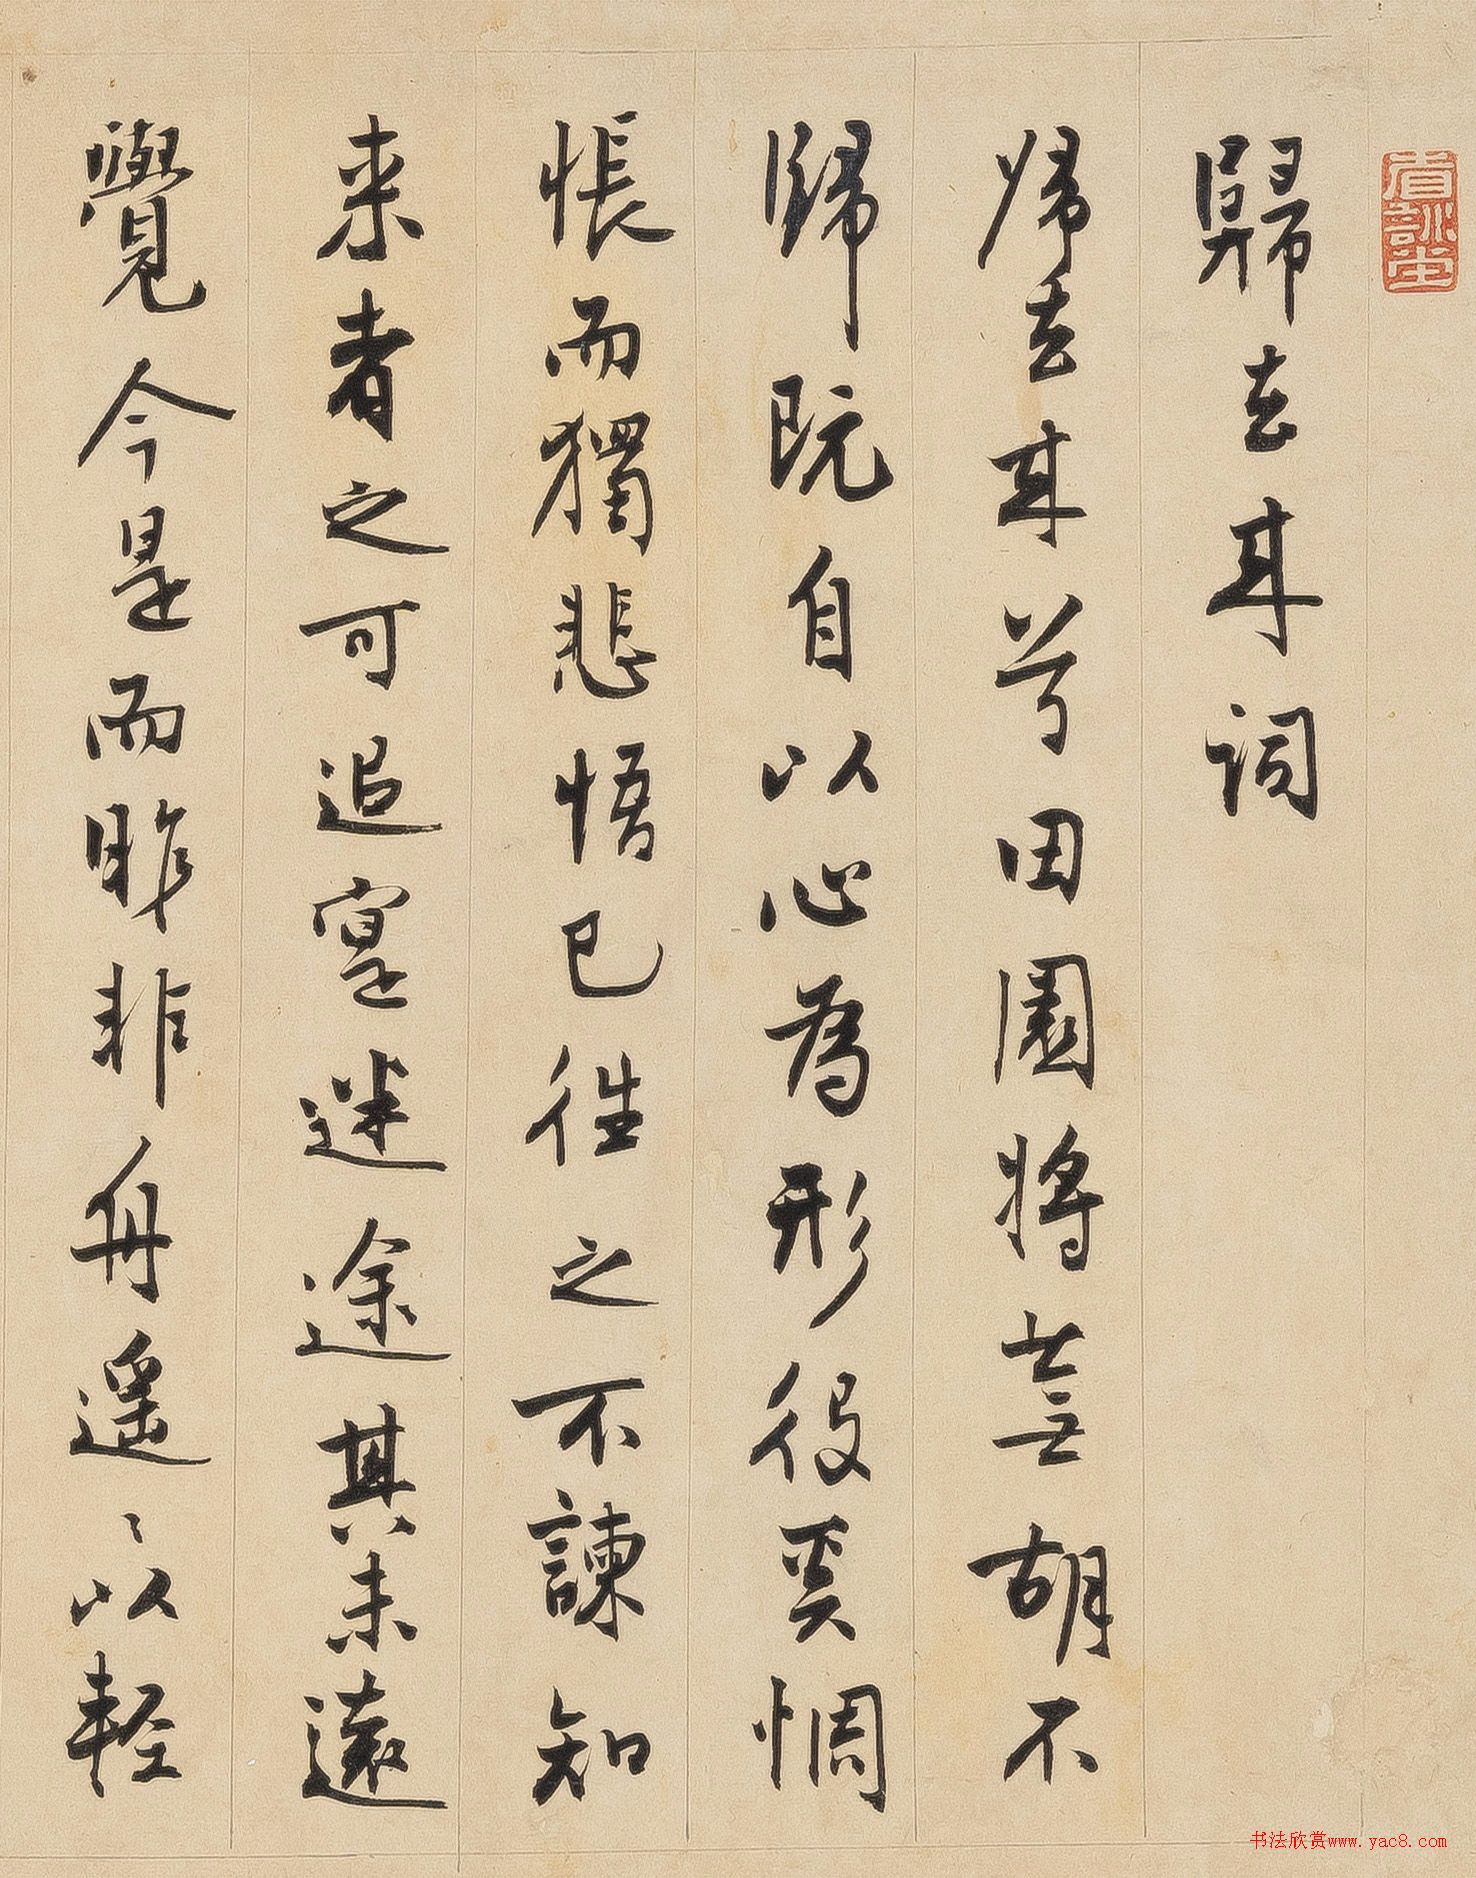 歸去來詞
歸去來兮田園將蕪胡不
歸既自以心為形役奚惆
悵而獨悲悟已往之不諫知
来者之可追寔迷途其未遠
覺今是而昨非舟遥〻以軽
书法欣赏www.yac8.com